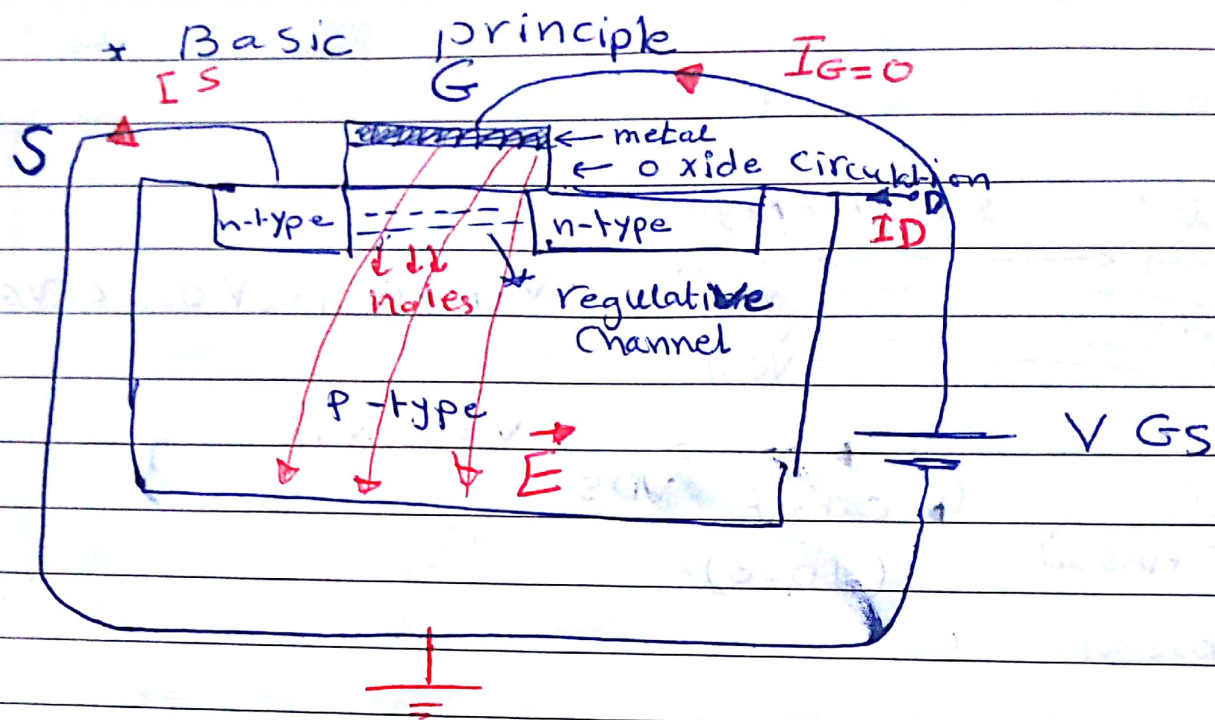 * Basic principle
IS
G
IG=0
S
← metal
← oxide circulation
D
n-type
n-type
ID
holes
regulative
channel
P-type
E
V GS